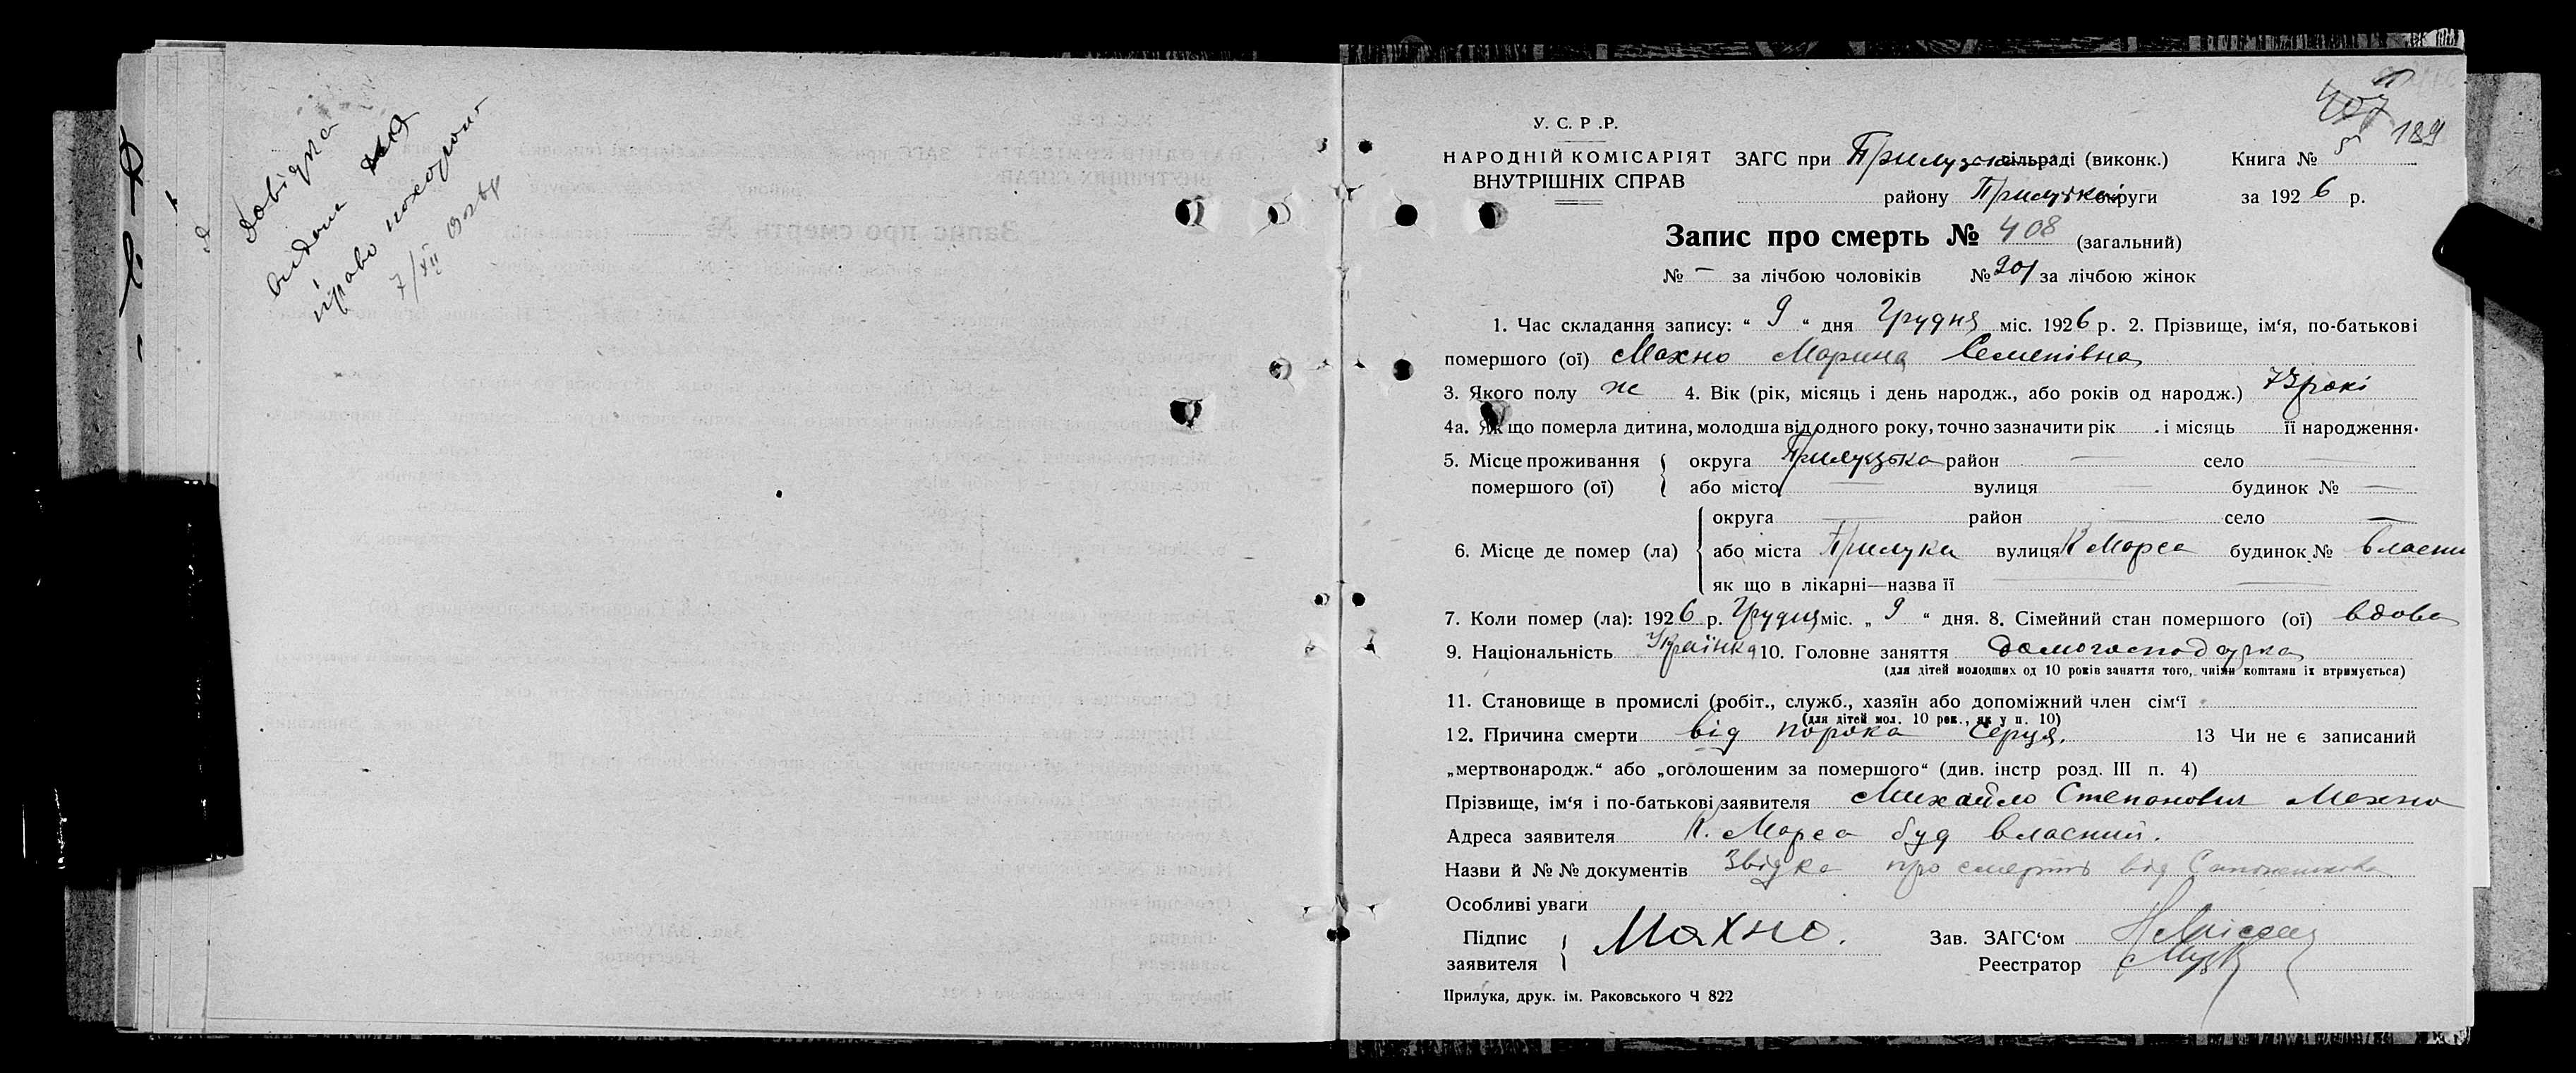 Довідка
видана на
право похорону
7/XII
189
У. С. Р. Р.
НАРОДНІЙ КОМІСАРІЯТ
ВНУТРІШНІХ СПРАВ
ЗАГС при Прилузськ сільраді (виконк.) Книга № 5
району Прилуцької округи за 1926 р.
Запис про смерть № 408 (загальний)
№ — за лічбою чоловіків № 201 за лічбою жінок
1. Час складання запису: “ 9 “ дня Грудня міс. 1926 р. 2. Прізвище, ім‘я, по-батькові
помершого (ої) Махно Марина Семенівна
3. Якого полу ж 4. Вік (рік, місяць і день народж., або років од народж.) 73 рокі
4а. Як що померла дитина, молодша від одного року, точно зазначити рік . і місяць її народження.
5. Місце проживання помершого (ої) округа Прилуцька район — село
або місто — вулиця — будинок № —
округа — район — село —
6. Місце де помер (ла) або міста Прилука вулиця К Маркса будинок № власни
як що в лікарні—назва її
7. Коли помер (ла): 1926 р. Грудня міс. „ 9 “ дня. 8. Сімейний стан помершого (ої) вдова
9. Національність Українка 10. Головне заняття домогосподарка
(для дітей молодших од 10 років заняття того, чиїми коштами їх втримується)
11. Становище в промислі (робіт., служб., хазяїн або допоміжний член сім‘ї
(для дітей мол. 10 рок., як у п. 10)
12. Причина смерти від порока серця. 13 Чи не є записаний
„мертвонародж.“ або „оголошеним за помершого“ (див. інстр розд. III п. 4)
Прізвище, ім‘я і по-батькові заявителя Михайло Степанович Махно
Адреса заявителя К. Маркса буд власний.
Назви й № № документів Звідка про смерть від
Особливі уваги
Підпис заявителя Махно. Зав. ЗАГС‘ом
Реестратор
Прилука, друк. ім. Раковського Ч 822